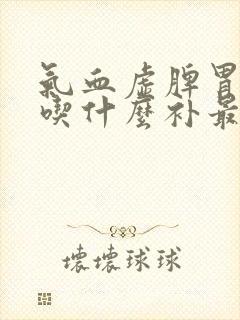 氣血虛脾胃
喫什麼补最
壊壊球球